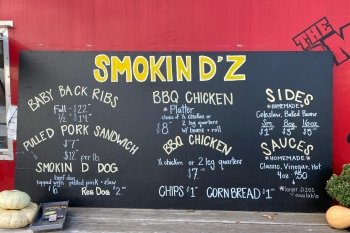 SMOKIN D'Z
BABY BACK RIBS
Full - $22
1/2 - $14
PULLED PORK SANDWICH
$7
$12 per lb
SMOKIN D DOG
beef dog
topped with pulled pork + slaw
$6
Reg Dog $2
BBQ CHICKEN
* Platter
choice of 1/2 chicken or
2 leg quarters
$8 w/ beans + roll
BBQ CHICKEN
1/2 chicken or 2 leg quarters
$7
CHIPS $1 CORNBREAD $1
SIDES
*HOMEMADE*
Coleslaw, Baked Beans
8oz 16oz
$1 $3 $5
SAUCES
*HOMEMADE*
Classic, Vinegar, Hot
4oz
*larger sizes
available
THE